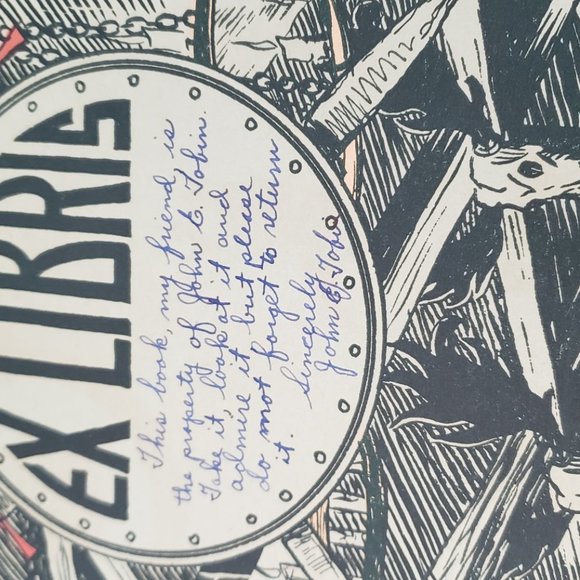 EX LIBRIS
This book, my friend is
the property of John E. Tobin.
Take it, look at it and
admire it but please
do not forget to return
it.
Sincerely
John E. Tobin